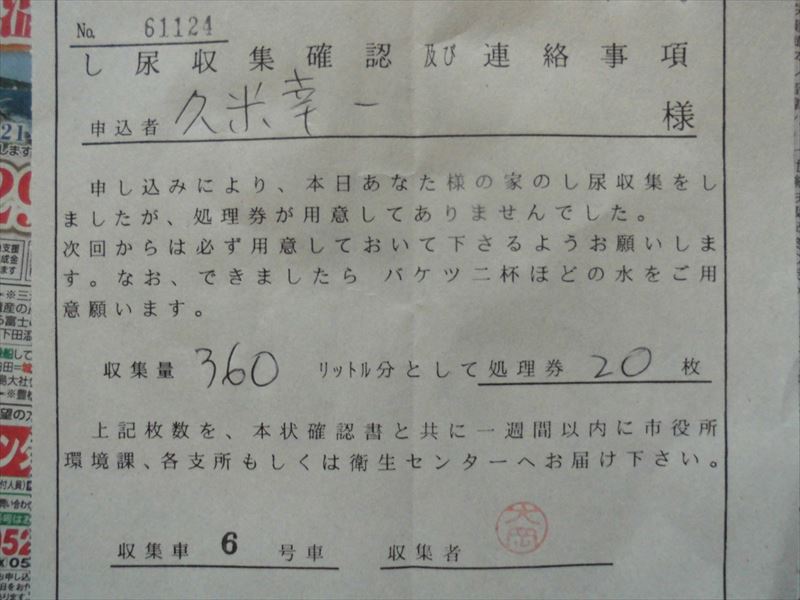 No. 61124
し尿収集確認及び連絡事項
申込者 久米幸一 様
申し込みにより、本日あなた様の家のし尿収集をし
ましたが、処理券が用意してありませんでした。
次回からは必ず用意しておいて下さるようお願いしま
す。なお、できましたら バケツ二杯ほどの水をご用
意願います。
収集量 360 リットル分として処理券 20 枚
上記枚数を、本状確認書と共に一週間以内に市役所
環境課、各支所もしくは衛生センターへお届け下さい。
収集車 6 号車 収集者 大岡
21
します
29
支援
成金
ます
※三
遺産の
富士
下田温
船して
田=城
島大社
※豊
望の
ング
付人員)
問い合わ
052